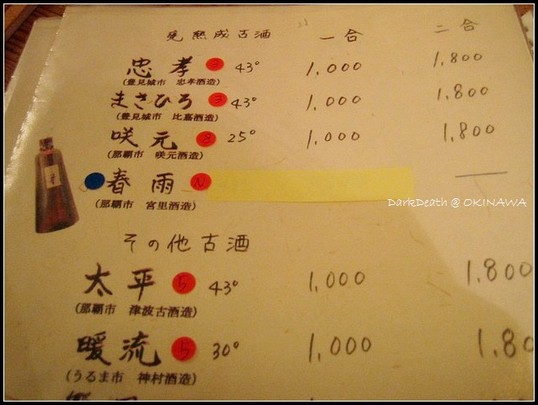 熟成古酒 一合 二合
忠孝 3 43° 1,000 1,800
(豊見城市 忠孝酒造)
まさひろ 3 43° 1,000 1,800
(豊見城市 比嘉酒造)
咲元 3 25° 1,000 1,800
(那覇市 咲元酒造)
春雨
(那覇市 宮里酒造)
DarkDeath @ OKINAWA
その他古酒
太平 5 43° 1,000 1,800
(那覇市 津波古酒造)
暖流 5 30° 1,000
(うるま市 神村酒造)